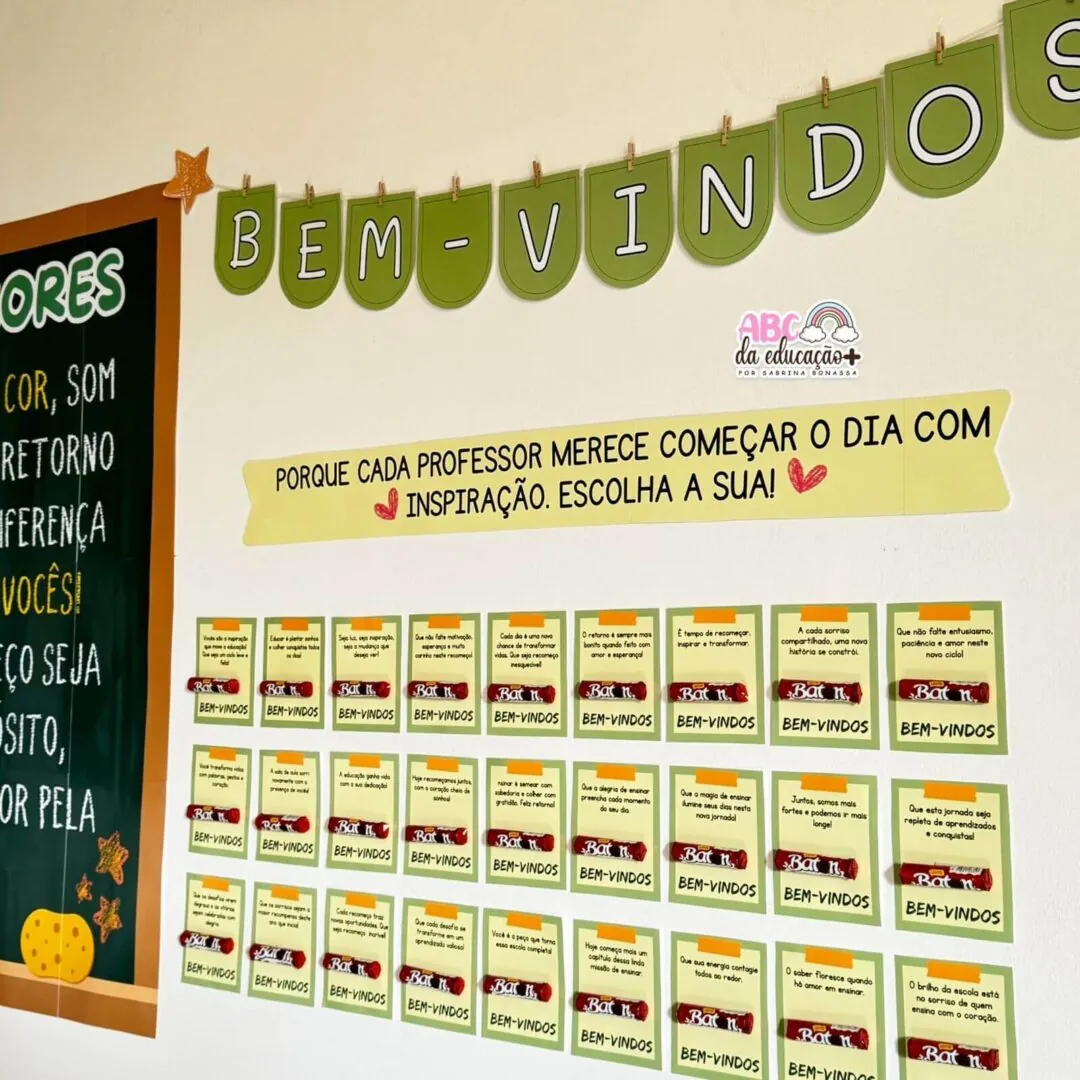 BEM-VINDOS
ORES
COR, SOM
RETORNO
IFERENÇA
VOCÊS!
EÇO SEJA
ÓSITO,
OR PELA
ABC
da educação+
POR SABRINA BONASSA
PORQUE CADA PROFESSOR MERECE COMEÇAR O DIA COM
INSPIRAÇÃO. ESCOLHA A SUA!
Vocês são a inspiração
que move a educação!
Que seja um ciclo leve e
feliz!
Baton
BEM-VINDOS
Educar é plantar sonhos
e colher conquistas todos
os dias!
Baton
BEM-VINDOS
Seja luz, seja inspiração,
seja a mudança que
deseja ver!
Baton
BEM-VINDOS
Que não falte motivação,
esperança e muito
carinho neste recomeço!
Baton
BEM-VINDOS
Cada dia é uma nova
chance de transformar
vidas. Que seja recomeço
inesquecível!
Baton
BEM-VINDOS
O retorno é sempre mais
bonito quando feito com
amor e esperança!
Baton
BEM-VINDOS
É tempo de recomeçar,
inspirar e transformar.
Baton
BEM-VINDOS
A cada sorriso
compartilhado, uma nova
história se constrói.
Baton
BEM-VINDOS
Que não falte entusiasmo,
paciência e amor neste
novo ciclo!
Baton
BEM-VINDOS
Você transforma vidas
com palavras, gestos e
coração.
Baton
BEM-VINDOS
A sala de aula sorri
novamente com a
presença de vocês!
Baton
BEM-VINDOS
A educação ganha vida
com a sua dedicação!
Baton
BEM-VINDOS
Hoje recomeçamos juntos,
com o coração cheio de
sonhos!
Baton
BEM-VINDOS
nsinar é semear com
sabedoria e colher com
gratidão. Feliz retorno!
Baton
BEM-VINDOS
Que a alegria de ensinar
preencha cada momento
do seu dia.
Baton
BEM-VINDOS
Que a magia de ensinar
ilumine seus dias nesta
nova jornada!
Baton
BEM-VINDOS
Juntos, somos mais
fortes e podemos ir mais
longe!
Baton
BEM-VINDOS
Que esta jornada seja
repleta de aprendizados
e conquistas!
Baton
BEM-VINDOS
Que os desafios virem
degraus e as vitórias
sejam celebradas com
alegria.
Baton
BEM-VINDOS
Que os sorrisos sejam a
maior recompensa deste
ano que inicia!
Baton
BEM-VINDOS
Cada recomeço traz
novas oportunidades. Que
seja recomeço incrível!
Baton
BEM-VINDOS
Que cada desafio se
transforme em um
aprendizado valioso!
Baton
BEM-VINDOS
Você é a peça que torna
essa escola completa!
Baton
BEM-VINDOS
Hoje começa mais um
capítulo dessa linda
missão de ensinar.
Baton
BEM-VINDOS
Que sua energia contagie
todos ao redor.
Baton
BEM-VINDOS
O saber floresce quando
há amor em ensinar.
Baton
BEM-VINDOS
O brilho da escola está
no sorriso de quem
ensina com o coração.
Baton